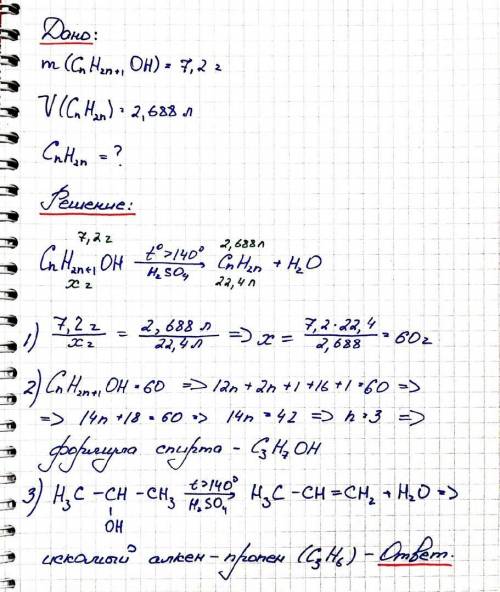 Дано:
m(CnH2n+1OH) = 7,2 г
V(CnH2n) = 2,688 л
CnH2n = ?
Решение:
7,2 г 2,688 л
CnH2n+1OH t°>140° H2SO4 → CnH2n + H2O
x г 22,4 л
1) 7,2 г / x г = 2,688 л / 22,4 л => x = 7,2·22,4 / 2,688 = 60 г
2) CnH2n+1OH = 60 => 12n + 2n + 1 + 16 + 1 = 60 =>
=> 14n + 18 = 60 => 14n = 42 => n = 3 =>
формула спирта - C3H7OH
3) H3C - CH - CH3 t>140° H2SO4 → H3C - CH = CH2 + H2O =>
OH
искомый алкен - пропен (C3H6) - Ответ.